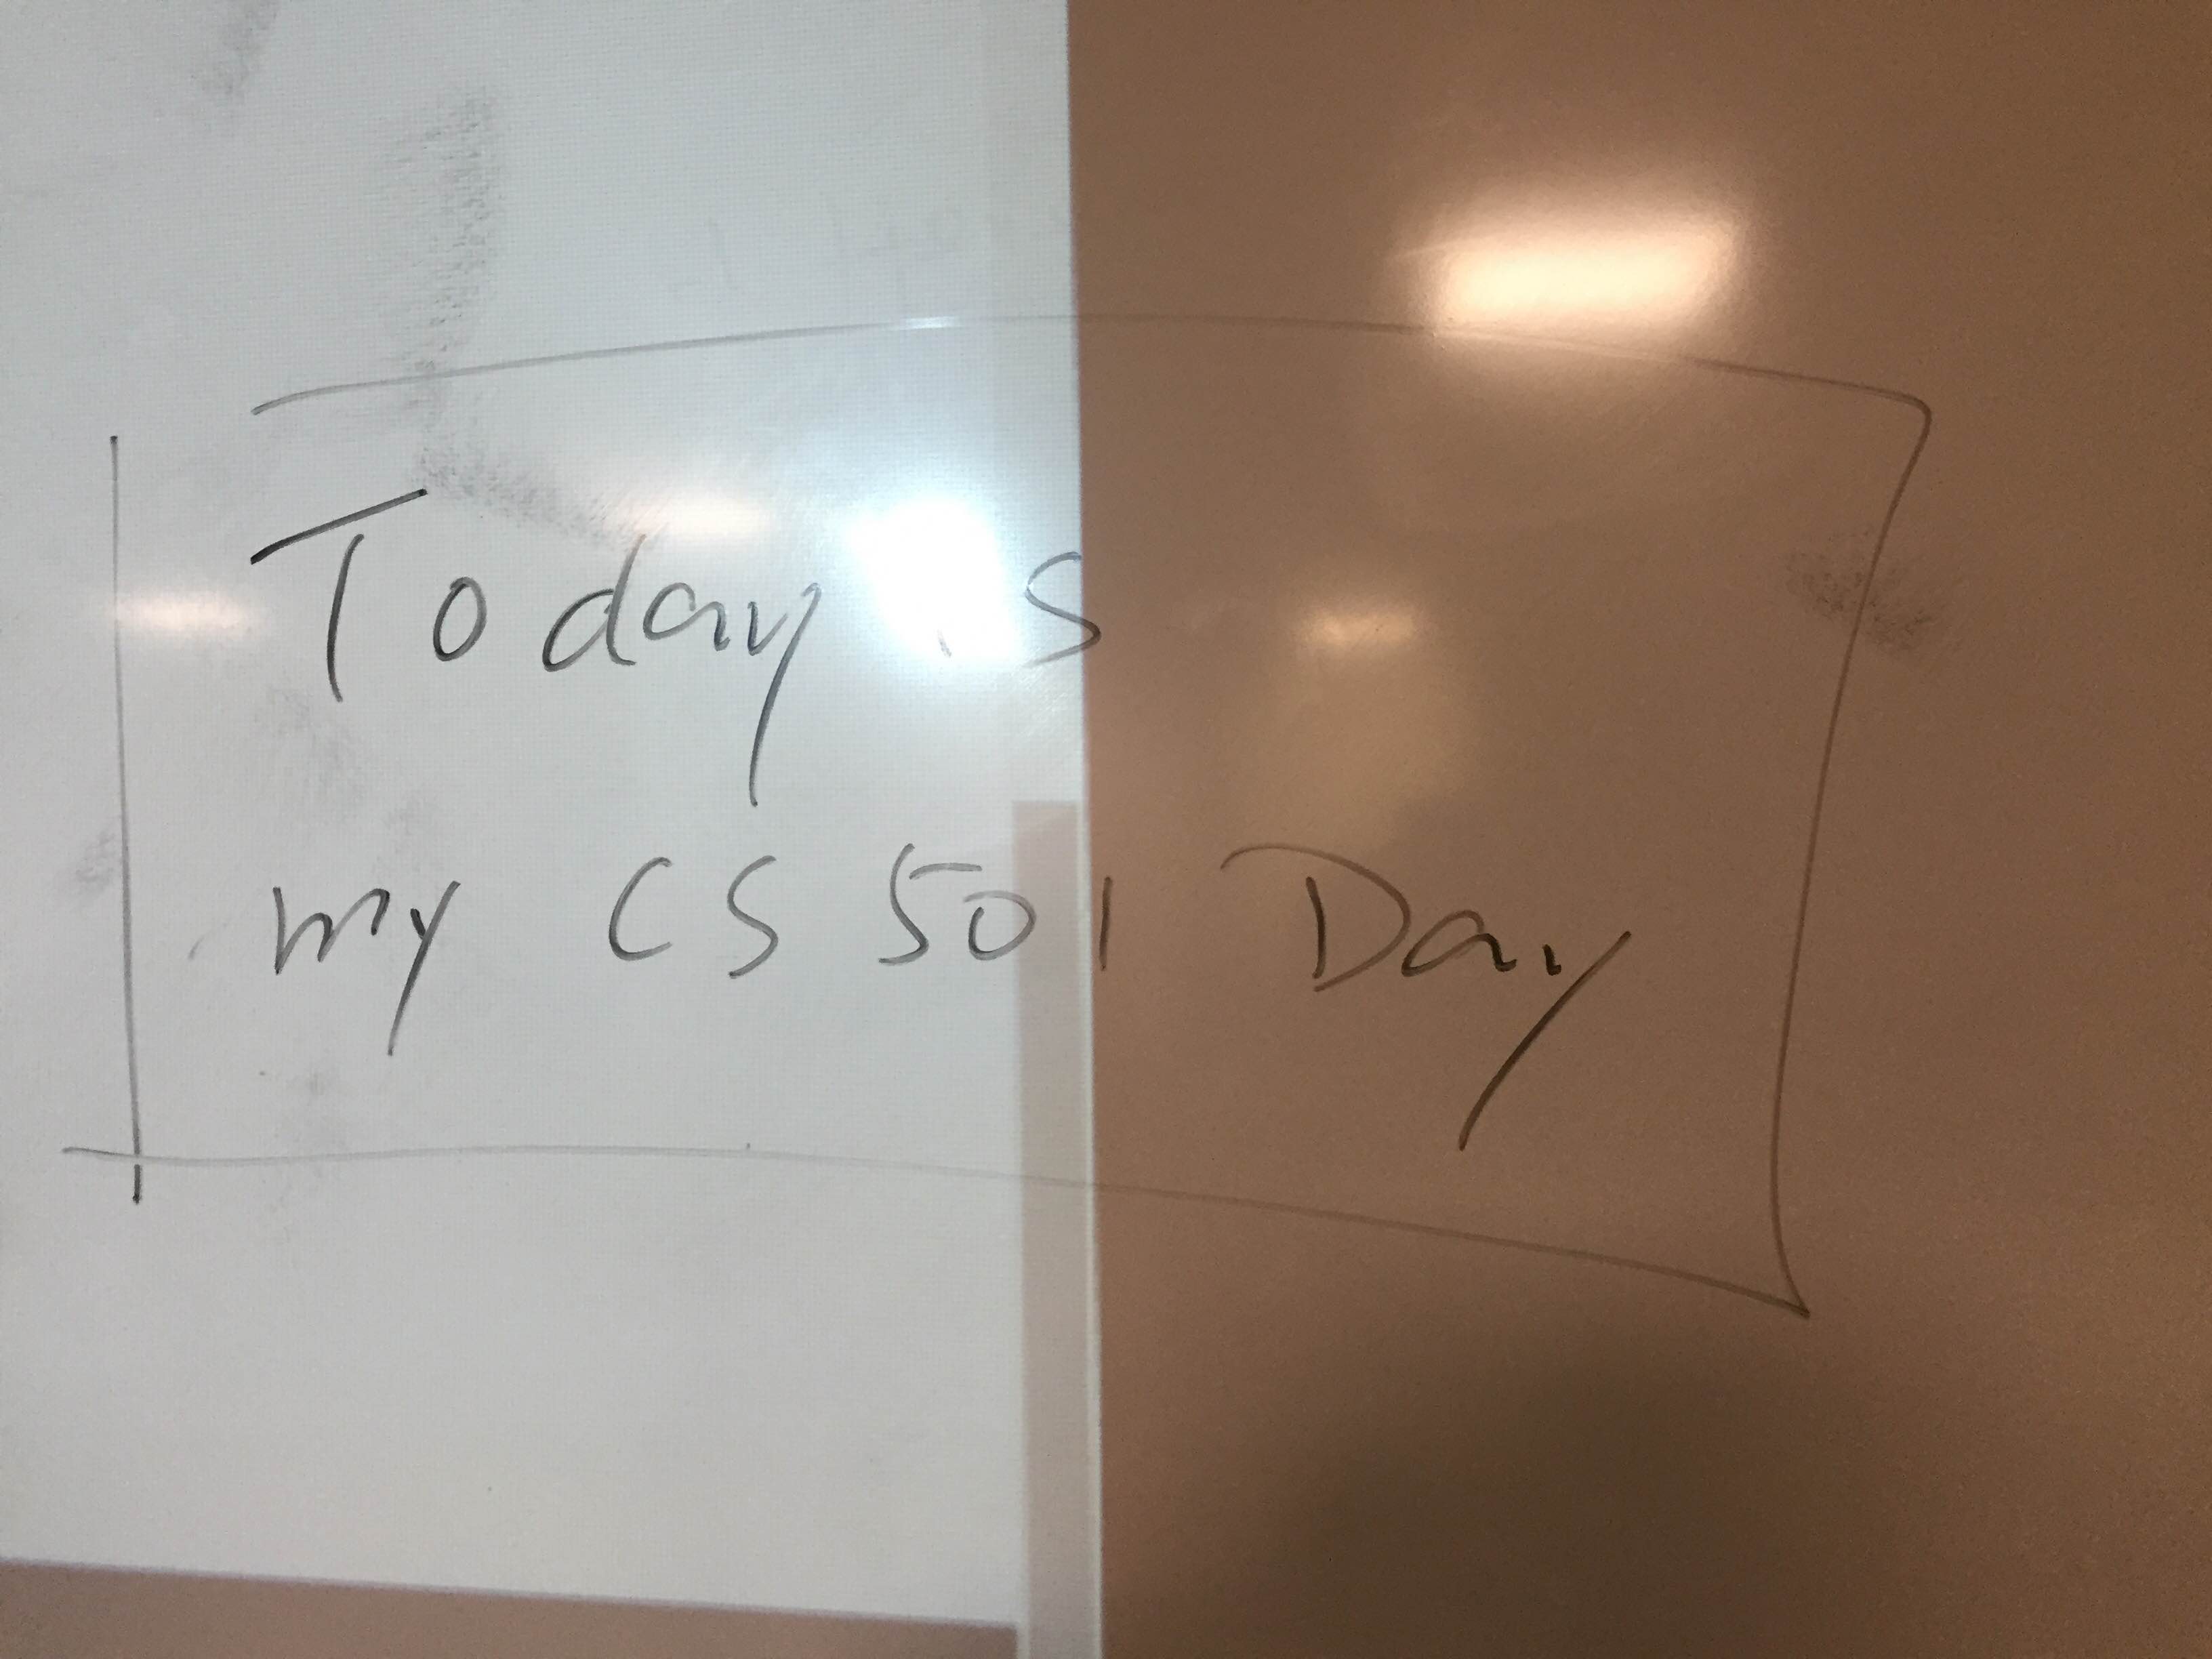 Today is
my CS 501 Day